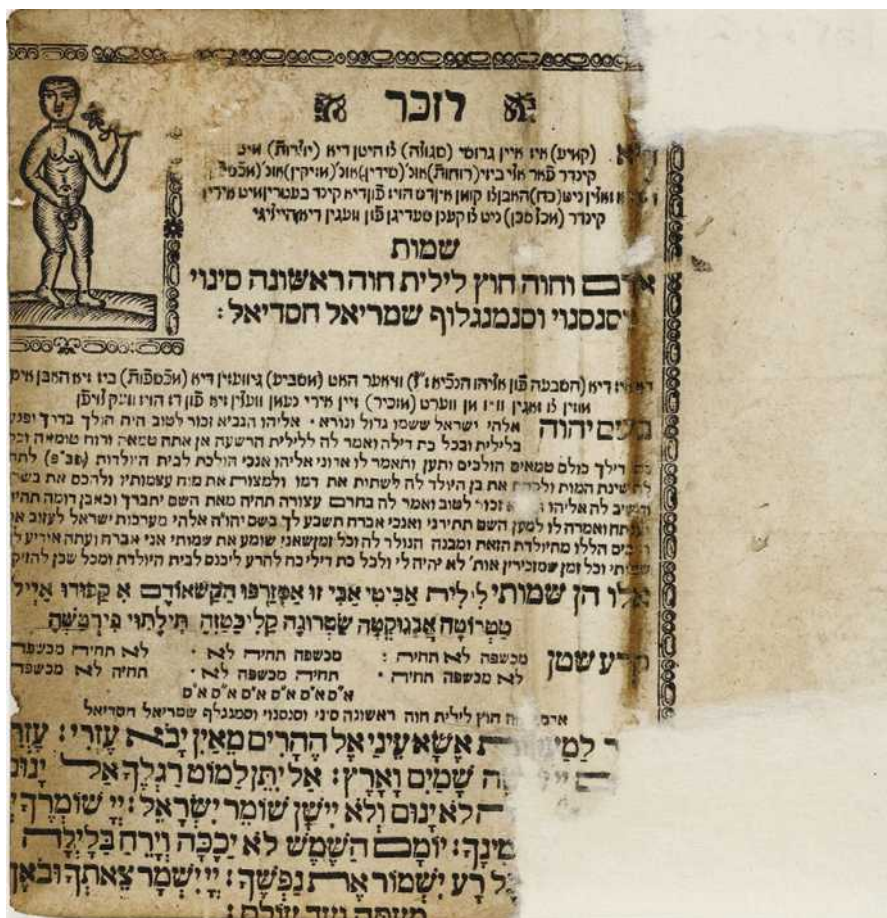 לזכר
(קמיע) איז איין גרוסי (סגולה) צו היטן דיא (יולדות) מיט
קינדר פאר אלי ביזי (רוחות) אונ' (סידין) אונ' (מזיקין) אונ'
ניט (כח) האבן צו קומן אין דס הויז פון דיא קינד בעטרין מיט אירין
קינדר ניט צו קענן שעדיגן פון וועגין דיא הייליגי
שמות
אדם וחוה חוץ לילית חוה ראשונה סינוי
סנסנוי וסנמנגלוף שמריאל חסדיאל:
דיא (השבעה פון אליהו הנביא ז"ל) וויא ער האט (משביע) גיוועזין דיא (מכשפות) ביז זיא האבן אים
מוזין צו זאגין ווען מן ווערט (מזכיר) זיין אירי נעמן ווערין זיא פון דז הויז וועק
יהוה אלהי ישראל ששמו גדול ונורא · אליהו הנביא זכור לטוב היה הולך בדרך ופגע
בלילית ובכל כת דילה ואמר לה ללילית הרשעה אן אתה טמאה ורוח טומאה וכל
דילך כולם טמאים הולכים ותען ותאמר לו אדוני אליהו אנכי הולכת לבית היולדת
שינת המות ולקחת את בן היולד לה לשתות את דמו ולמצוץ את מוח עצמותיו ולהכס את בשרו
והשיב לה אליהו זכור לטוב ואמר לה בחרם עצורה תהיה מאת השם יתברך וכאבן דומה תהיה
ואמרה לו למען השם תתירני ואנכי אברח תשבע לך בשם יהוה אלהי מערכות ישראל לעזוב את
הללו מהיולדת הזאת ומבנה הנולד לה וכל זמן שאני שומע את שמותי אני אברח ועתה אודיע לך
שמותי וכל זמן שמזכירין אות' לא יהיה לי ולכל כת דילי כח להרע ליכנס לבית היולדת ומכל שכן להזיק
אלו הן שמותי לילית אביטי אביזו אמזרפו הקשאודם א קפודו איילו
טטרוטה אבנוקטה שטרונה קליכטזה תילתוי פירטשה
קרע שטן מכשפה לא תחיה : מכשפה תחיה לא · לא תחיה מכשפה
לא מכשפה תחיה · תחיה מכשפה לא · תחיה לא מכשפה
א"ס א"ס א"ס א"ס א"ס א"ס
חוץ לילית חוה ראשונה סינוי וסנסנוי וסמנגלף שמריאל חסדיאל
אשא עיני אל ההרים מאין יבא עזרי: עזרי
שמים וארץ: אל יתן למוט רגלך אל ינום
לא ינום ולא יישן שומר ישראל: יי שומרך
ימינך: יומם השמש לא יככה וירח בלילה
רע ישמור את נפשך: יי ישמר צאתך ובואך
מעתה ועד עולם: